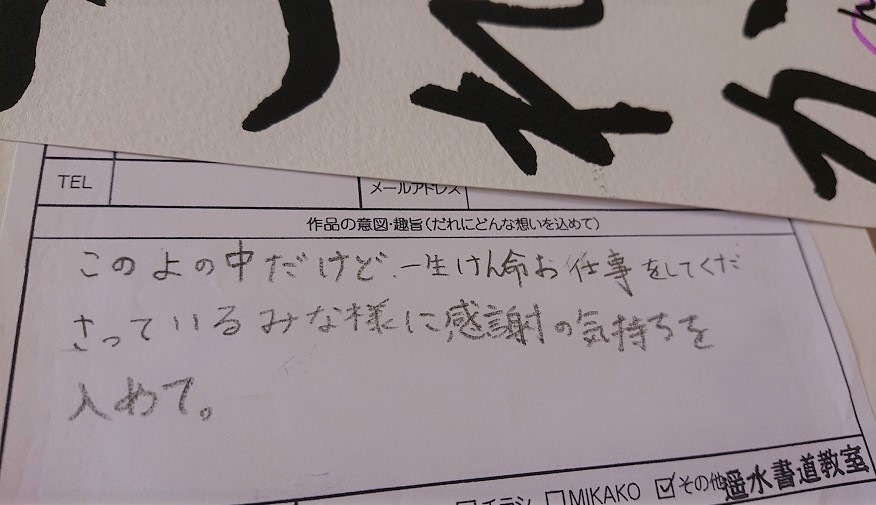 TEL
メールアドレス
作品の意図・趣旨(だれにどんな想いを込めて)
このよの中だけど、一生けん命お仕事をしてくだ
さっているみな様に感謝の気持ちを
入めて。
チラシ □MIKAKO ☑その他 遥水書道教室